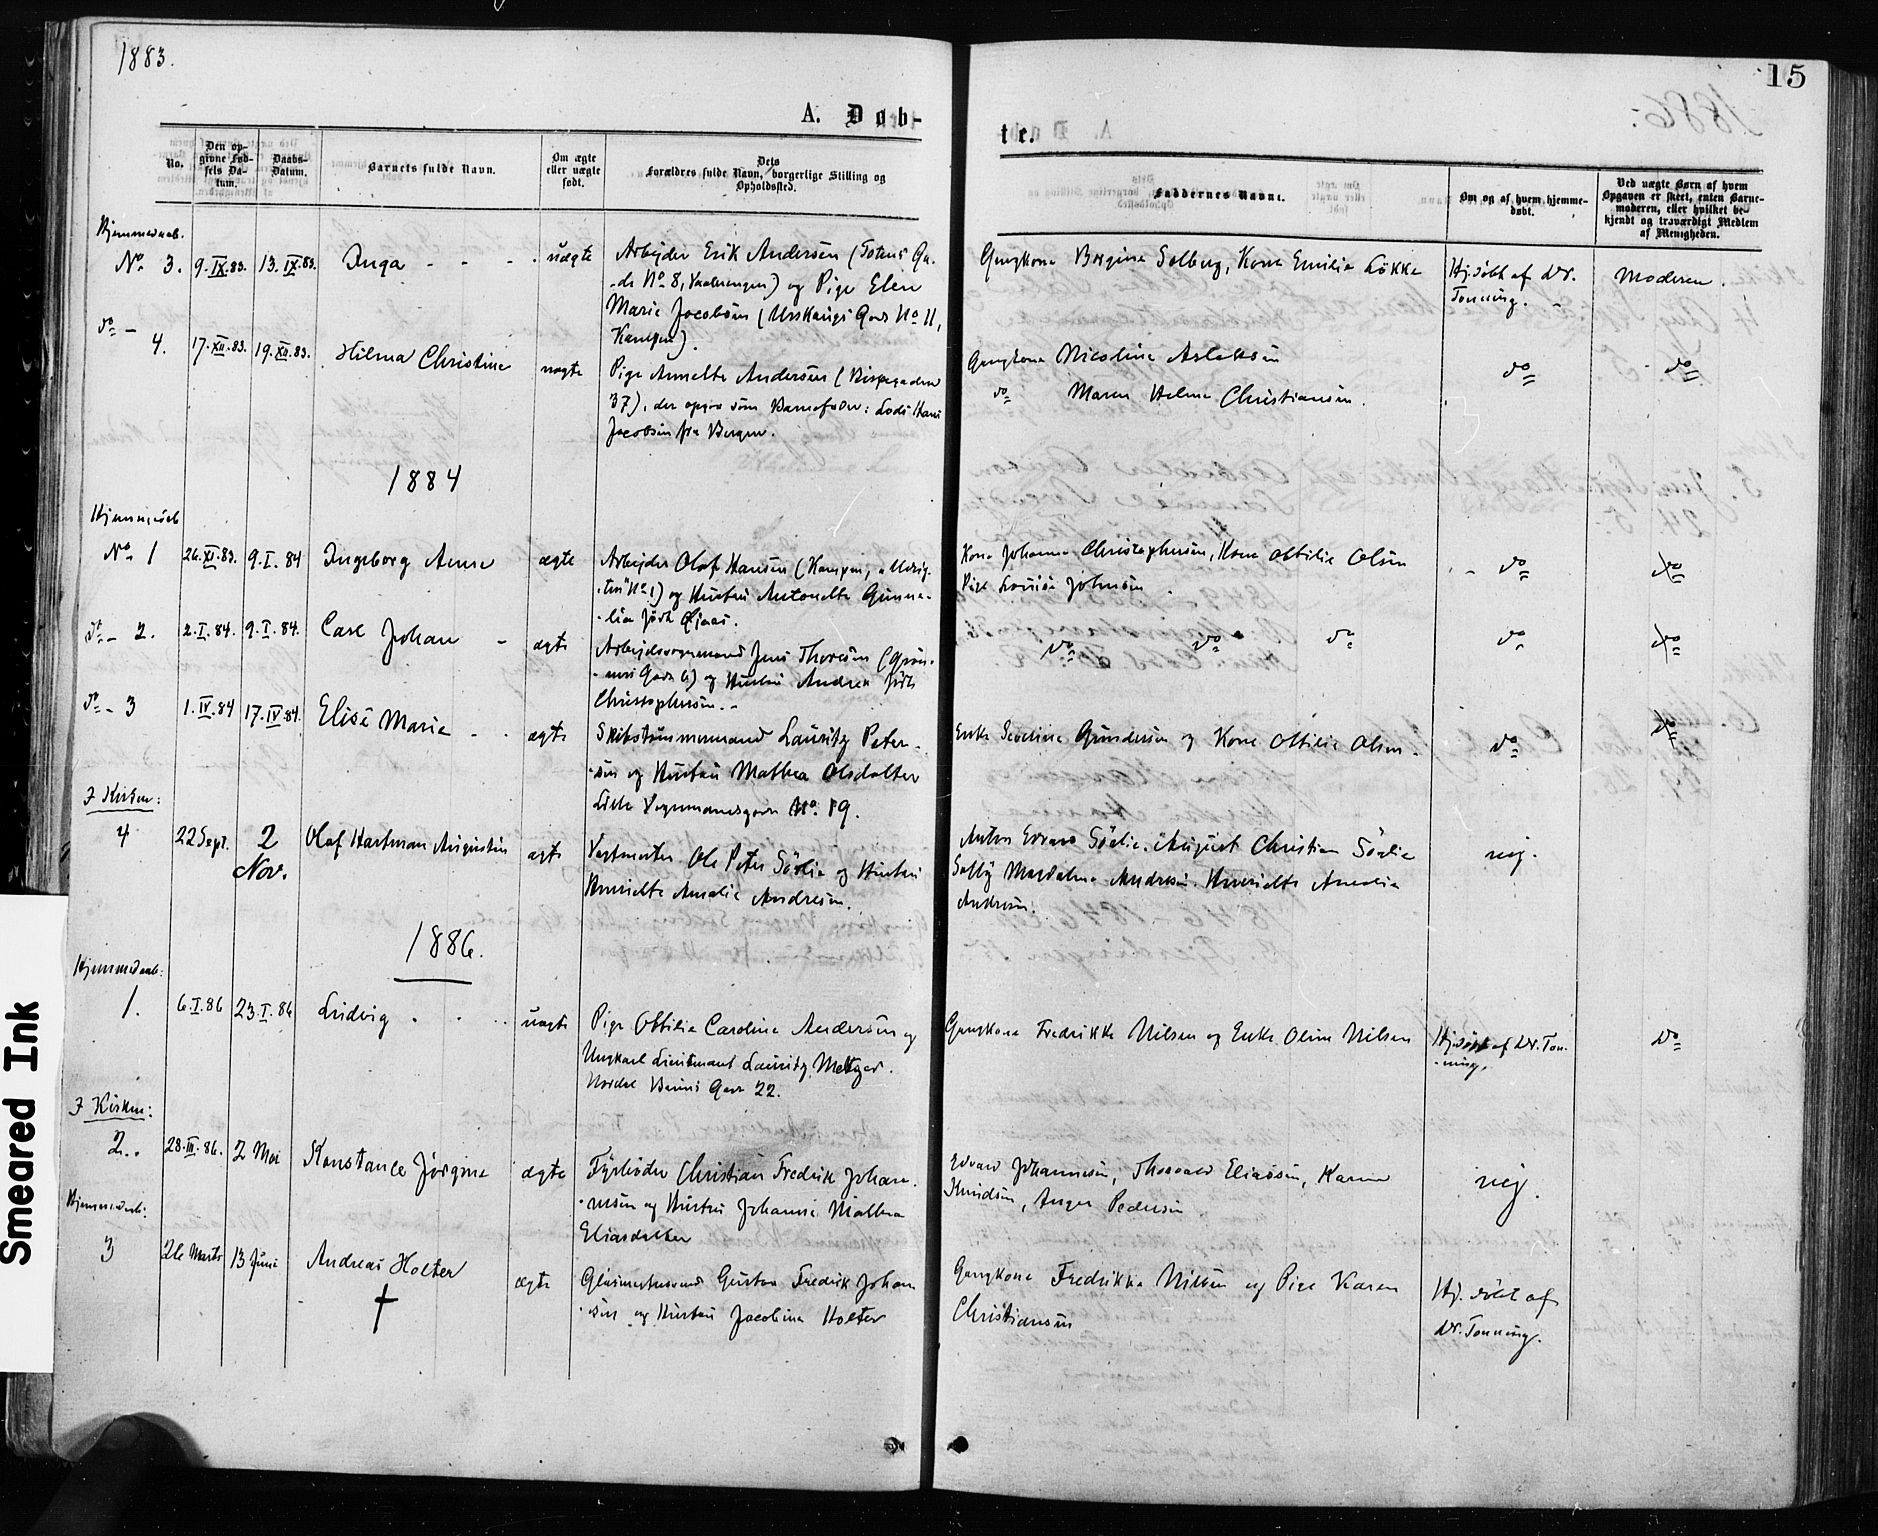 1883.
15
A. Døb-
te.
No.
Den op-
givne Fød-
sels Da-
tum.
Daabs-
Datum.
Barnets fulde Navn.
Om ægte
eller uægte
født.
Dets
Forældres fulde Navn, borgerlige Stilling og
Opholdssted.
Faddernes Navne.
Om og af hvem hjemme-
døbt.
Ved uægte Børn af hvem
Opgaven er skeet, enten Barne-
moderen, eller hvilket be-
kjendt og troværdigt Medlem
af Menigheden.
Hjemmedaab.
No. 3. 9.IX.83. 13.IX.83. Inga - - - uægte
Arbejder Erik Andersen (Totens Ga-
-de No 8, Vaalerengen) og Pige Elen
Marie Jacobsen ( Urskougs Gade No 11,
Kampen).
Gangkone Borgine Solberg, Kone Emilie Løkke
Hj.døbt af Dr.
Tonning.
Moderen.
do - 4. 17.XII.83. 19.XII.83. Hilma Christine uægte
Pige Annette Andersen ( Bispegaden
37), der opgav som Barnefader: Lods Hans
Jacobsen fra Bergen.
Gangkone Nicoline Aslaksen
do Maren Helene Christiansen.
do
do
1884
Hjemmedaab
No. 1 26.XI.83. 9.I.84 Ingeborg Anna ægte
Arbejder Olaf Hansen (Kampen,
No 1) og Hustru Antonette Gunne-
-lia født
Kone Johanne Christophersen, Kone Ottilie Olsen
Pige Lovise Johnsen.
do
do
do - 2. 2.I.84. 9.I.84. Carl Johan - ægte
Arbejdsformand Jens Thoresen (Grøn-
Gade 6) og Hustru Andrea født
Christophersen. -
do do do
do
do
do - 3 1.IV.84 17.IV.84. Elise Marie - - ægte
Skibstømmermand Lauritz Peter-
-sen og Hustru Mathea Olsdatter
Lille Vognmandsgade No. 19.
Enke Severine Gundersen og Kone Ottilie Olsen.
do
do
I Kirken:
4 22 Sept. 2 Nov. Olaf Hartman Augustin ægte
Ole Peter Sørlie og Hustru
Henriette Amalie Andresen.
Anton Edvard Sørlie. August Christian Sørlie
Magdalene Andresen. Henriette Amalie
Andresen.
nej.
1886.
Hjemmedaab:
1. 6.I.86 23.I.86 Ludvig . . .. uægte
Pige Ottilie Caroline Andersen og
Ungkarl Lieutenant Lauritz Metzger.
Nordal Bruns Gade 22.
Gangkone Fredrikke Nilsen og Enke Oline Nilsen
Hj.døbt af Dr. Ton-
-ning.
do
I Kirken:
2.. 28.III.86. 2 Mai Konstance Jørgine ægte
Fyrbøder Christian Fredrik Johan-
-nesen og Hustru Johanne Mathea
Eliasdatter
Edvard Johannesen, Thorvald Eliassen, Karen
Knudsen, Anger Pedersen
nej.
Hjemmedaab:
3 26 Marts 13 Juni Andreas Holter ægte
†
Glasmestersvend Gustav Fredrik Johan-
-sen og Hustru Jacobine Holter
Gangkone Fredrikke Nilsen og Pige Karen
Christiansen
Hj. døbt af
Dr. Tonning.
Smeared Ink